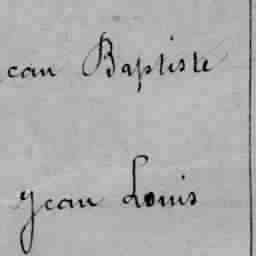 ean Baptiste
Jean Louis